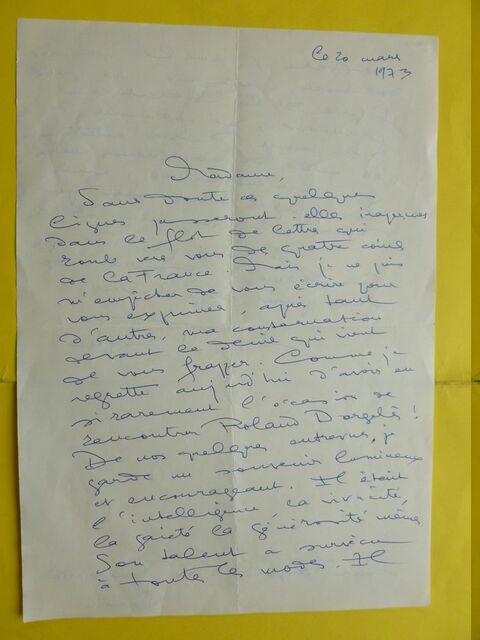 Le 20 mars
1973
Madame,
Sans doute ces quelques
lignes passeront-elles inaperçues
dans le flot de lettre qui
roule vers vous des quatre coins
de la France. Mais je ne puis
m'empêcher de vous écrire pour
vous exprimer, après tant
d'autres, ma consternation
devant le deuil qui vient
de vous frapper. Comme je
regrette aujourd'hui d'avoir eu
si rarement l'occasion de
rencontrer Roland Dorgelès !
De nos quelques entrevues, je
garde un souvenir lumineux
et encourageant. Il était
l'intelligence, la vivacité,
la gaieté la générosité mêmes.
Son talent a survécu
à toutes les modes. Il